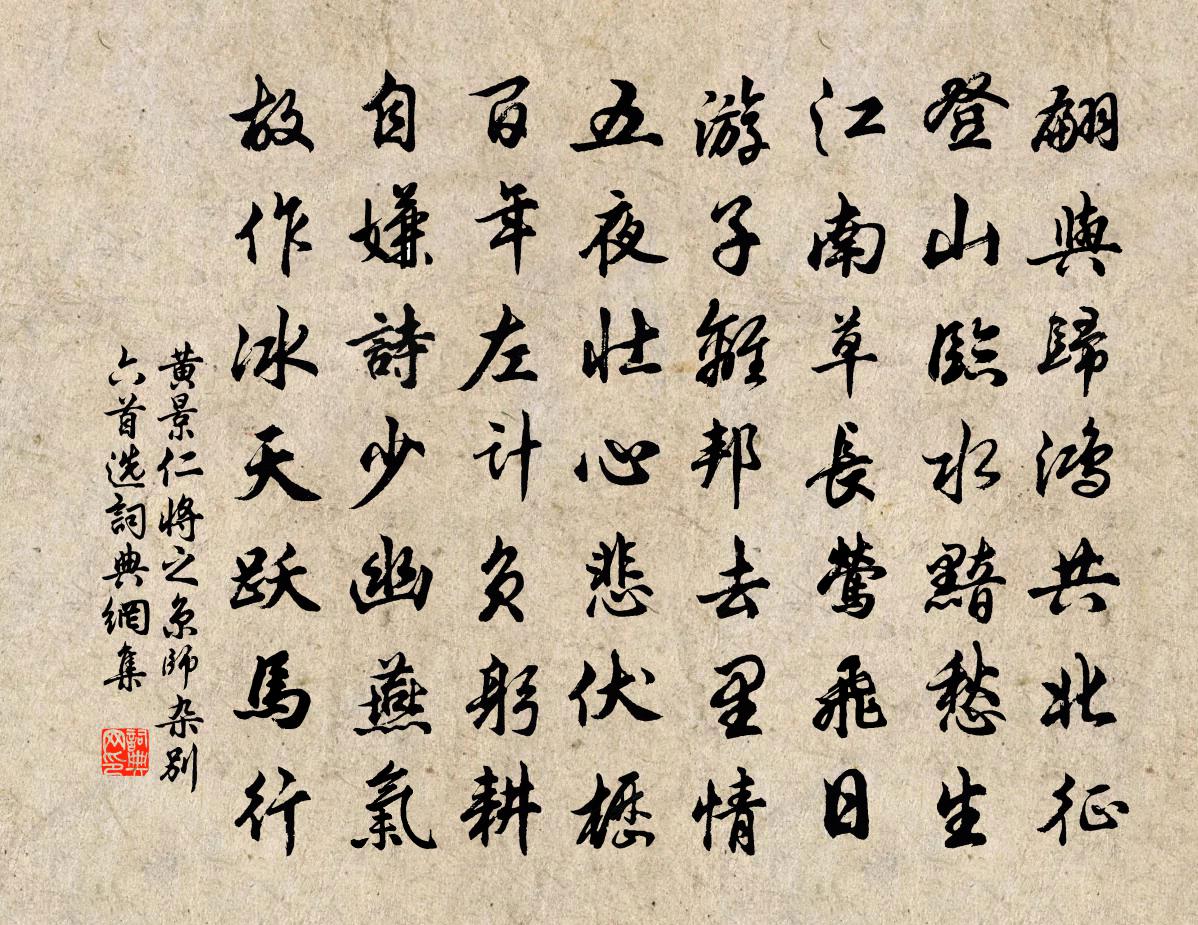 翩與歸鴻共北征
登山臨水黯愁生
江南草長鶯飛日
游子離邦去里情
五夜壯心悲伏櫪
百年左計負躬耕
自嫌詩少幽燕氣
故作冰天跃馬行
黄景仁將之京師杂别
六首选詞典網集
詞典网印